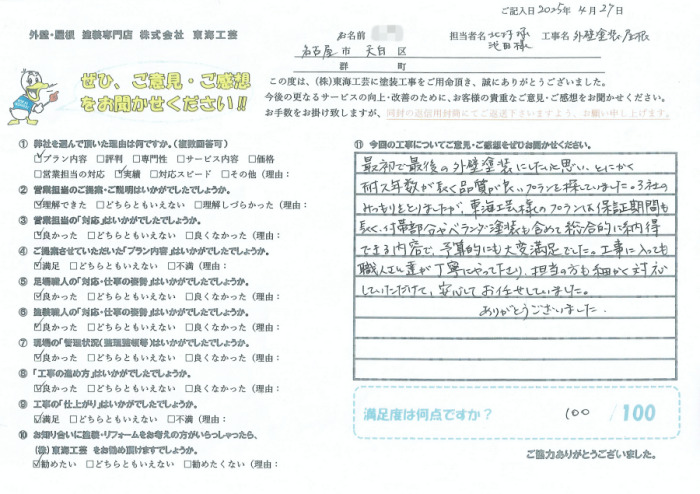 ご記入日2025年 4月27日
外壁・屋根 塗装専門店 株式会社 東海工芸
お名前
担当者名 池田様 工事名 外壁塗装、屋根
名古屋市 天白区
郡 町
ぜひ、ご意見・ご感想
をお聞かせください!!
この度は、(株)東海工芸に塗装工事をご用命頂き、誠にありがとうございました。
今後の更なるサービスの向上・改善のために、お客様の貴重なご意見・ご感想をお聞かせください。
お手数をお掛け致しますが、同封の返信用封筒にてご返送下さいますよう、お願い申し上げます。
① 弊社を選んで頂いた理由は何ですか。(複数回答可)
☑プラン内容 □評判 □専門性 □サービス内容 □価格
□営業担当の対応 ☑実績 □対応スピード □その他(理由:
② 営業担当のご提案・ご説明はいかがでしたでしょうか。
☑理解できた □どちらともいえない □理解しづらかった(理由:
③ 営業担当の「対応」はいかがでしたでしょうか。
☑良かった □どちらともいえない □良くなかった(理由:
④ ご提案させていただいた「プラン内容」はいかがでしたでしょうか。
☑満足 □どちらともいえない □不満(理由:
⑤ 足場職人の「対応・仕事の姿勢」はいかがでしたでしょうか。
☑良かった □どちらともいえない □良くなかった(理由:
⑥ 塗装職人の「対応・仕事の姿勢」はいかがでしたでしょうか。
☑良かった □どちらともいえない □良くなかった(理由:
⑦ 現場の「管理状況(整理整頓等)はいかがでしたでしょうか。
☑良かった □どちらともいえない □良くなかった(理由:
⑧ 「工事の進め方」はいかがでしたでしょうか。
☑良かった □どちらともいえない □良くなかった(理由:
⑨ 工事の「仕上がり」はいかがでしたでしょうか。
☑満足 □どちらともいえない □不満(理由:
⑩ お知り合いに塗装・リフォームをお考えの方がいらっしゃったら、
(株)東海工芸 をお勧め頂けますでしょうか。
☑勧めたい □どちらともいえない □勧めたくない(理由:
⑪ 今回の工事についてご意見・ご感想をぜひお聞かせください。
最初で最後の外壁塗装にしたいと思い、とにかく
耐久年数が長く品質が良いプランを探していました。3社の
みつもりをとりましたが、東海工芸様のプランは保証期間も
長く、付帯部分やベランダ塗装も含めて総合的に納得
できる内容で、予算的にも大変満足でした。工事に入っても
職人さん達が丁寧にやって下さり、担当の方も細かく対応
していただけて、安心してお任せしていました。
ありがとうございました。
満足度は何点ですか? 100 /100
ご協力ありがとうございました。